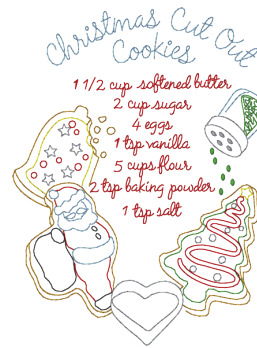 Christmas Cut Out
Cookies
1 1/2 cup softened butter
2 cup sugar
4 eggs
1 tsp vanilla
5 cups flour
2 tsp baking powder
1 tsp salt